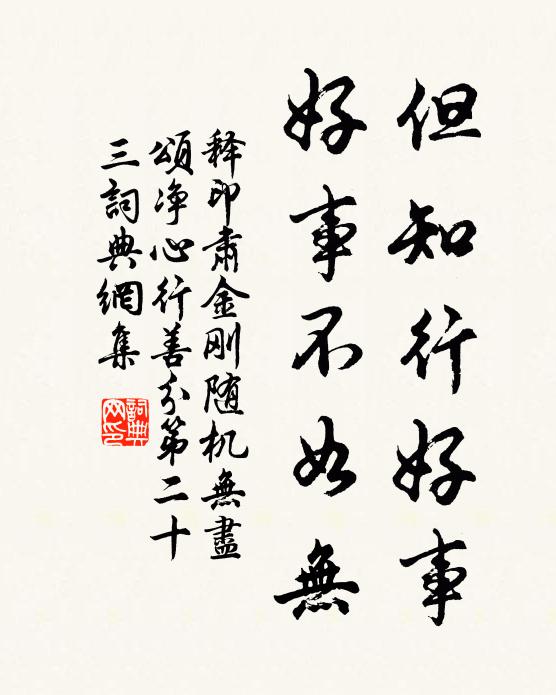 但知行好事
好事不如無
释印肃金刚随机無盡
頌净心行善分第二十
三詞典網集
詞典網印